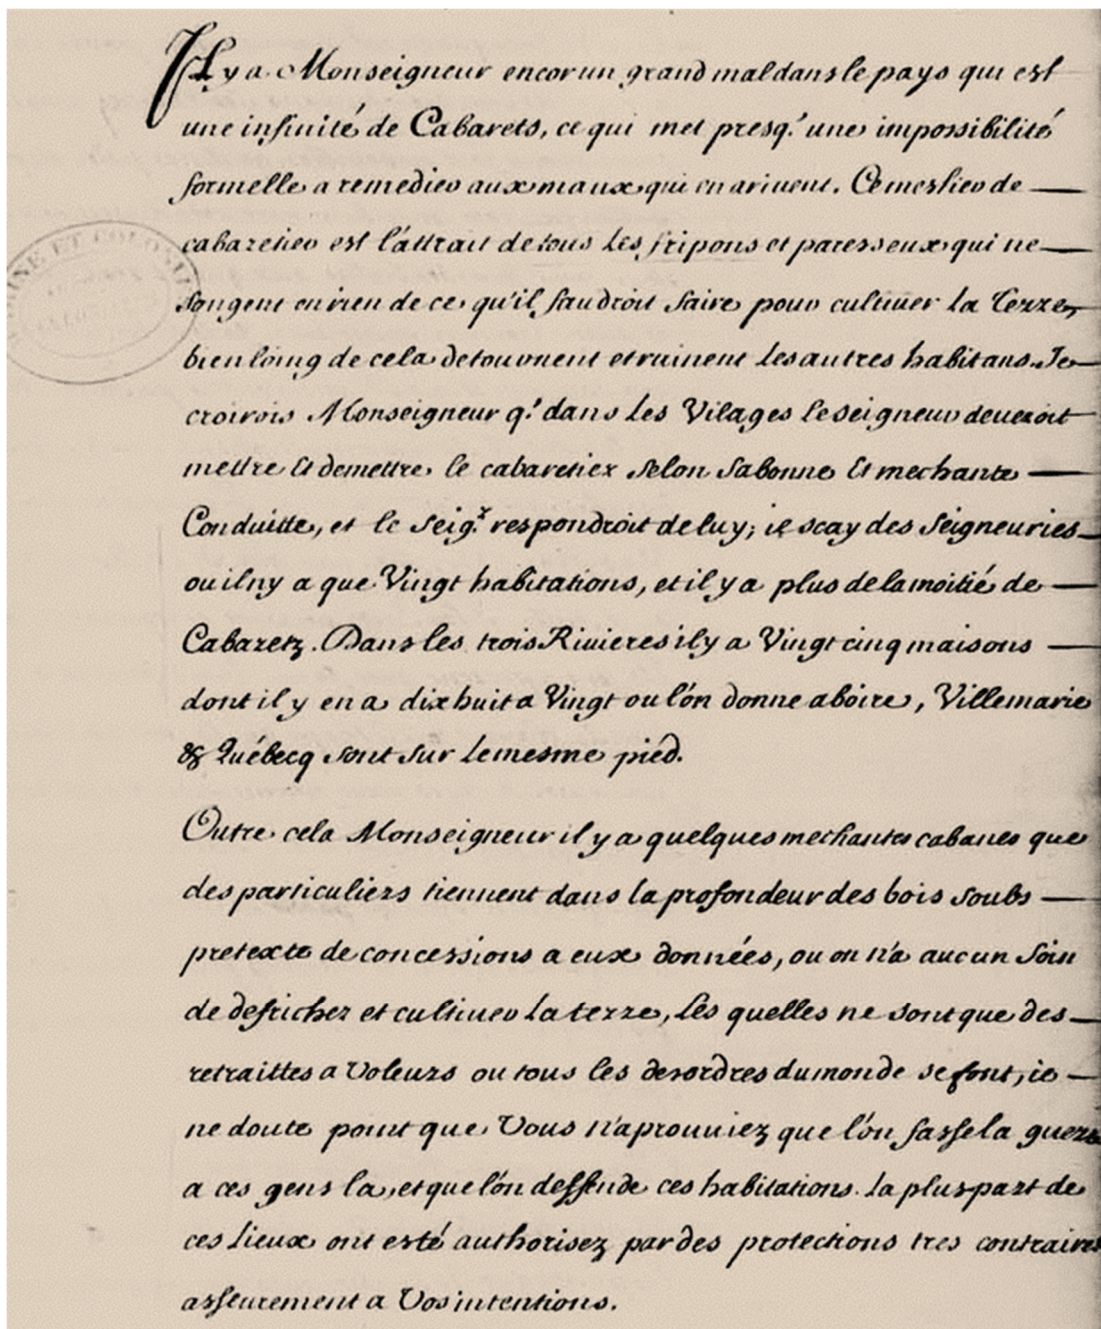 Il y a Monseigneur encor un grand mal dans le pays qui est
une infinité de Cabarets, ce qui met presq.' une impossibilité
formelle a remedier aux maux qui en arivent. Ce mestier de
cabaretier est l'attrait de tous les fripons et paresseux qui ne
songent en rien de ce qu'il faudroit faire pour cultiuer la Terre,
bien loing de cela detournent et ruinent les autres habitans. Je
croirois Monseigneur q.' dans les Vilages le seigneur deueroit
mettre et demettre le cabaretier selon sa bonne et mechante
Conduitte, et le seig.r respondroit de luy; ie scay des seigneuries
ou il ny a que Vingt habitations, et il y a plus de la moitié de
Cabaretz. Dans les trois Riuieres il y a Vingt cinq maisons
dont il y en a dix huit a Vingt ou l'on donne a boire, Villemarie
& Québecq sont sur le mesme pied.
Outre cela Monseigneur il y a quelques mechantes cabanes que
des particuliers tiennent dans la profondeur des bois soubs
pretexte de concessions a eux données, ou on n'a aucun soin
de desricher et cultiuer la terre, les quelles ne sont que des
retraittes a Voleurs ou tous les desordres du monde se font, ie
ne doute point que Vous n'aprouuiez que l'on fasse la guerre
a ces gens la, et que l'on deffende ces habitations. la plus part de
ces lieux ont esté authorisez par des protections tres contraires
asseurement a Vos intentions.